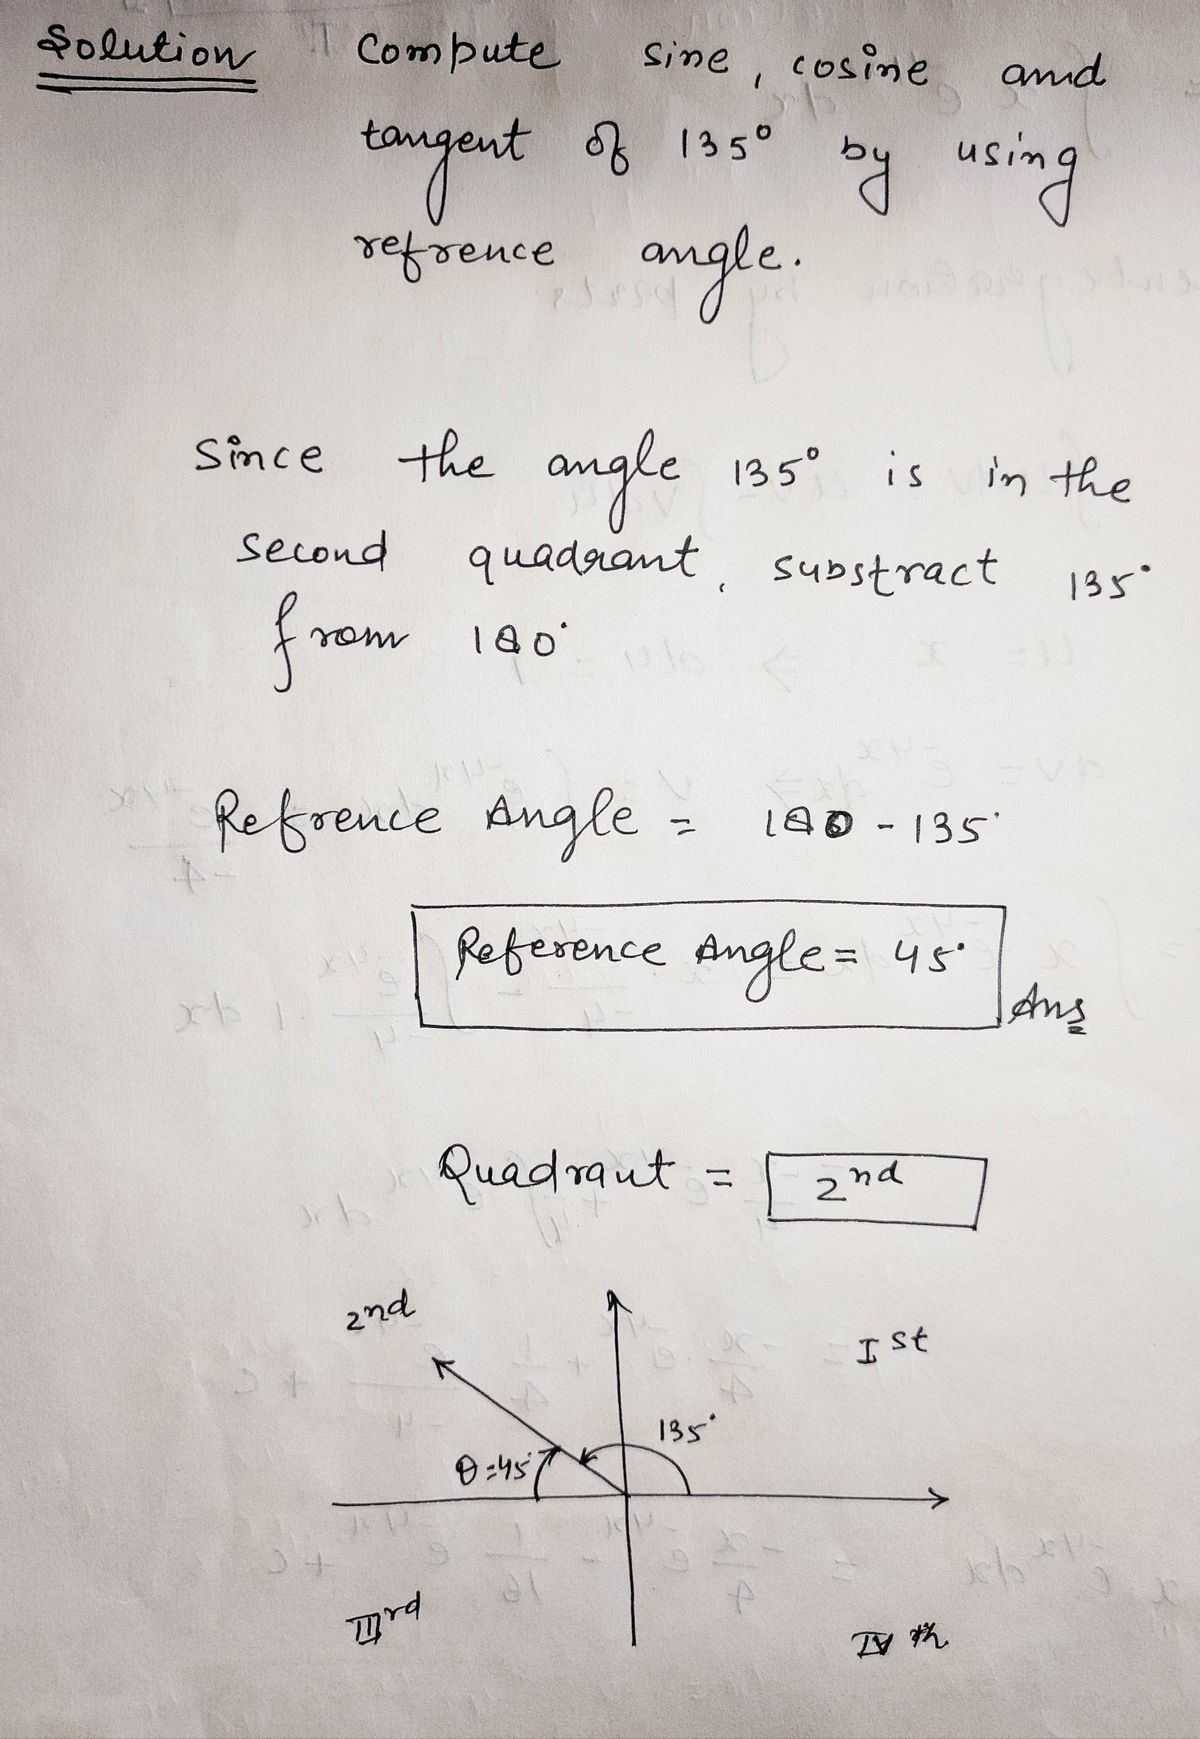 Solution Compute sine, cosine and
tangent of 135° by using
refrence angle.
Since the angle 135° is in the
second quadrant, substract 135°
from 180°
Refrence Angle = 180 - 135°
Reference Angle = 45°
Ans
Quadrant = 2nd
2nd
I st
135°
θ=45°
III rd
IV th